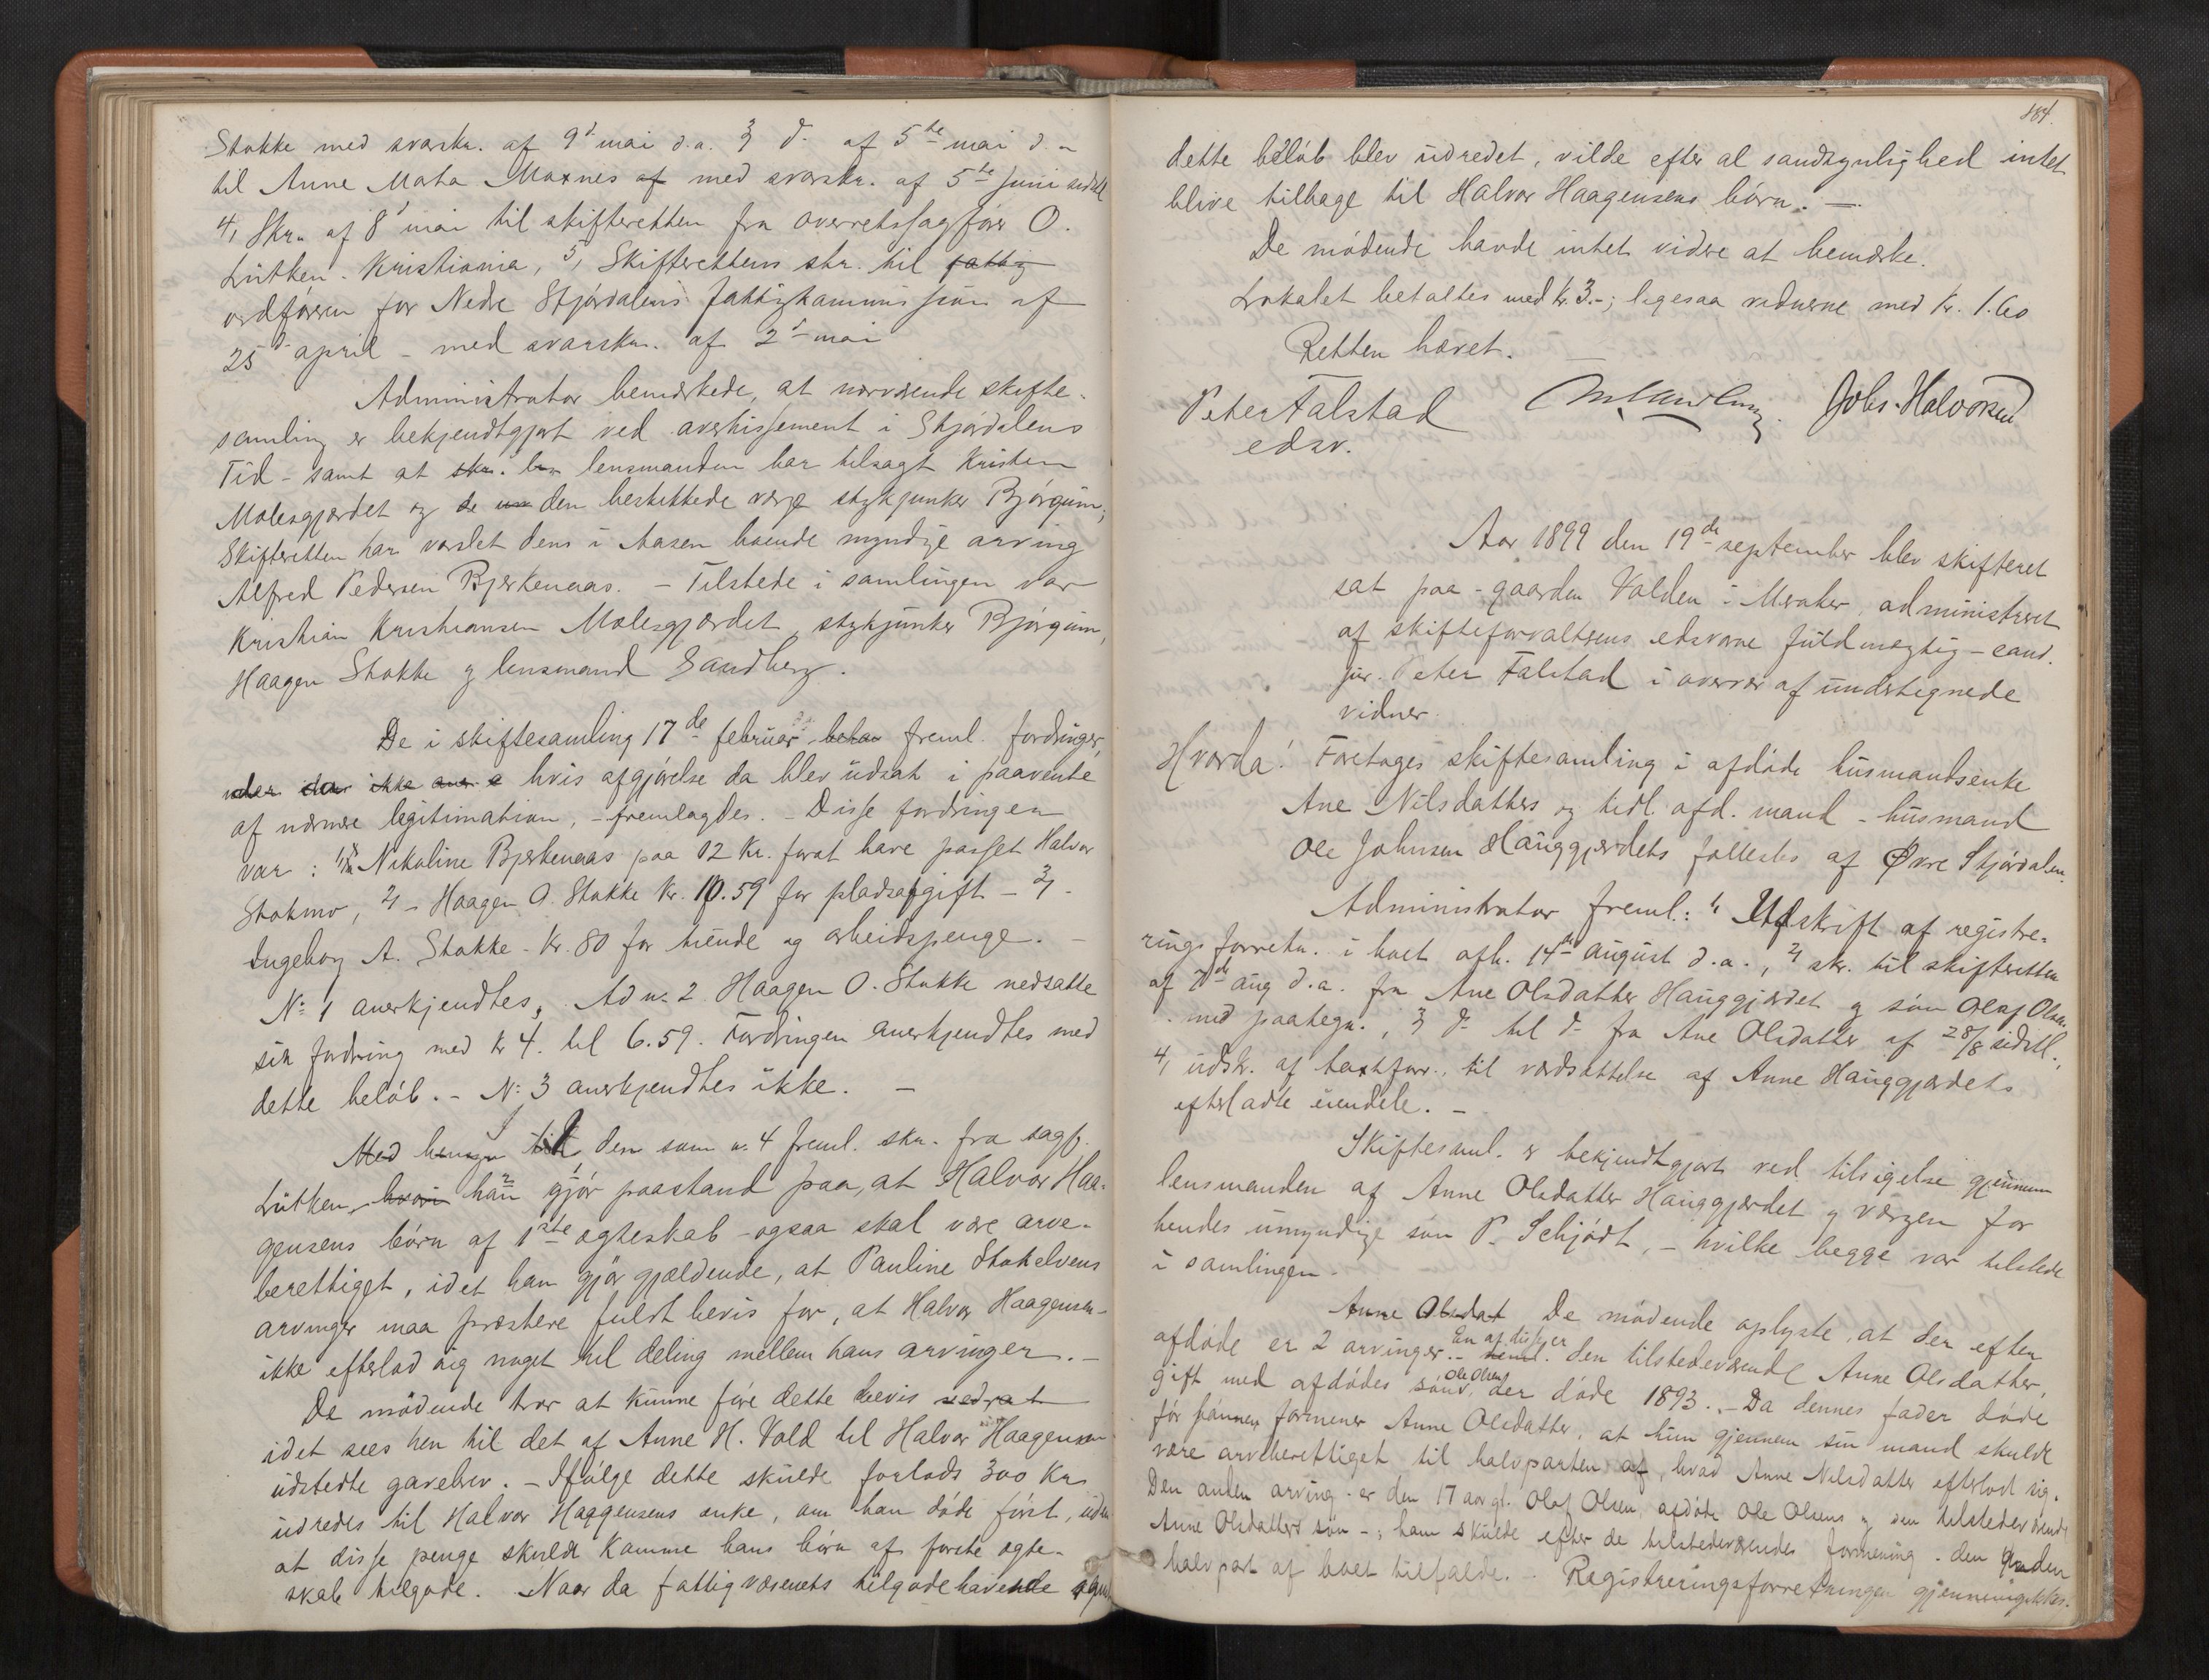 Stokke med svarskr. af 9d mai d.a. 3, do af 5te mai d.a
til Anne Marta Moxnes af med svarskr. af 5te juni sidstl
4, Skr. af 8d mai til skifteretten fra overretssagfører O.
Lütken. Kristiania, 5, Skifterettens skr. til fattig
ordføreren for Nedre Stjørdalens fattigkommission af
25d april – med svarskr. af 2d mai
Administrator bemærkede, at nærværende skifte-
samling er bekjendtgjort ved avertissement i Stjørdalens
Tid – samt at skr. len lensmanden har tilsagt Kristian
Molesgjærdet og de um den beskikkede værge stykjunker Bjørgum;
Skifteretten har varslet dens i Aasen boende myndige arving
Alfred Pedersen Bjerkenaas. – Tilstede i samlingen var
Kristian Kristiansen Molesgjærdet, stykjunker Bjørgum,
Haagen Stokke og lensmand Sandberg.
De i skiftesamling 17de februar beha freml. fordringer,
uden der ikke aner e hvis afgjørelse da blev udsat i paavente
af nærmere legitimation, – fremlagdes. – Disse fordringer
var: 1, Nikoline Bjerkenaas paa 12 Kr. forat have passet Halvor
Stokmo, 2, – Haagen O. Stokke Kr. 10.59 for pladsafgift – 3, –
Ingeborg A. Stokke – Kr. 80 for tiende og arbeidspenge. –
No 1 anerkjendtes, Ad n. 2 Haagen O. Stokke nedsatte
sin fordring med kr 4. til 6.59. Fordringen anerkjendtes med
dette beløb. – N: 3 anerkjendtes ikke. –
Med hensyn til den som n. 4 freml. skr. fra sagf.
Lütken, hvori han gjør paastand paa, at Halvor Haa-
gensens børn af 1ste ægteskab – ogsaa skal være arve-
berettiget, idet han gjør gjældende, at Pauline Stokelvens
arvinger maa præstere fuldt bevis for, at Halvor Haagensen
ikke efterlod sig noget til deling mellem hans arvinger. –
De mødende tror at kunne føre dette bevis ved at
idet sees hen til det af Anne H. Vold til Halvor Haagensen
udstedte gavebrev. – Ifølge dette skulde forlods 300 Kr
udredes til Halvor Haagensens enke, om han døde først, uden
at disse penge skulde komme hans børn af første ægte-
skab tilgode. Naar da fattigvæsenets tilgodehavende
184.
dette beløb blev udredet, vilde efter al sandsynlighed intet
blive tilbage til Halvor Haagensens børn. –
De mødende havde intet videre at bemærke.
Lokalet betaltes med kr. 3.–; ligesaa vidnerne med kr. 1.60
Retten hævet. –
Peter Falstad Johs. Halvorsen
edsv.
Aar 1899 den 19de september blev skifteret
sat paa – gaarden Volden i Meraker, administreret
af skifteforvalterens edsvorne fuldmægtig – cand.
jur. Peter Falstad i overvær af undertegnede
vidner.
Hvorda: Foretoges skiftesamling i afdøde husmandsenke
Ane Nilsdatters og tidl. afd. mand – husmand
Ole Johnsen Hauggjærdets fællesbo af Øvre Stjørdalen.
Administrator freml.: 1, Udskrift af registre-
ringsforretn. i boet afh. 14de august d.a., 2, skr. til skifteretten
af 7de aug d.a. fra Ane Olsdatter Hauggjærdet og søn Olaf Olsen
med paategn., 3, do til do fra Ane Olsdatter af 28/8 sidstl.,
4, udskr. af taxtforr. til værdsættelse af Anne Hauggjærdets
efterladte eiendele. –
Skiftesaml. er bekjendtgjort ved tilsigelse gjennem
lensmanden af Anne Olsdatter Hauggjærdet og værgen for
hendes umyndige søn P. Schjødt, – hvilke begge var tilstede
i samlingen.
Anne Olsdat De mødende oplyste, at der efter
afdøde er 2 arvinger. – En af disse er den tilstedeværende Anne Olsdatter,
gift med afdødes søn Ole Olsen, der døde 1893. – Da dennes fader døde
før sønnen formener Anne Olsdatter, at hun gjennem sin mand skulde
være arveberettiget til halvparten af, hvad Anne Nilsdatter efterlod sig.
Den anden arving – er den 17 aar gl. Olaf Olsen, afdøde Ole Olsens og den tilstedeværende
Anne Olsdatters søn –; ham skulde efter de tilstedeværendes formening – den anden
halvpart af boet tilfalde. – Registreringsforretningen gjennemgikkes.